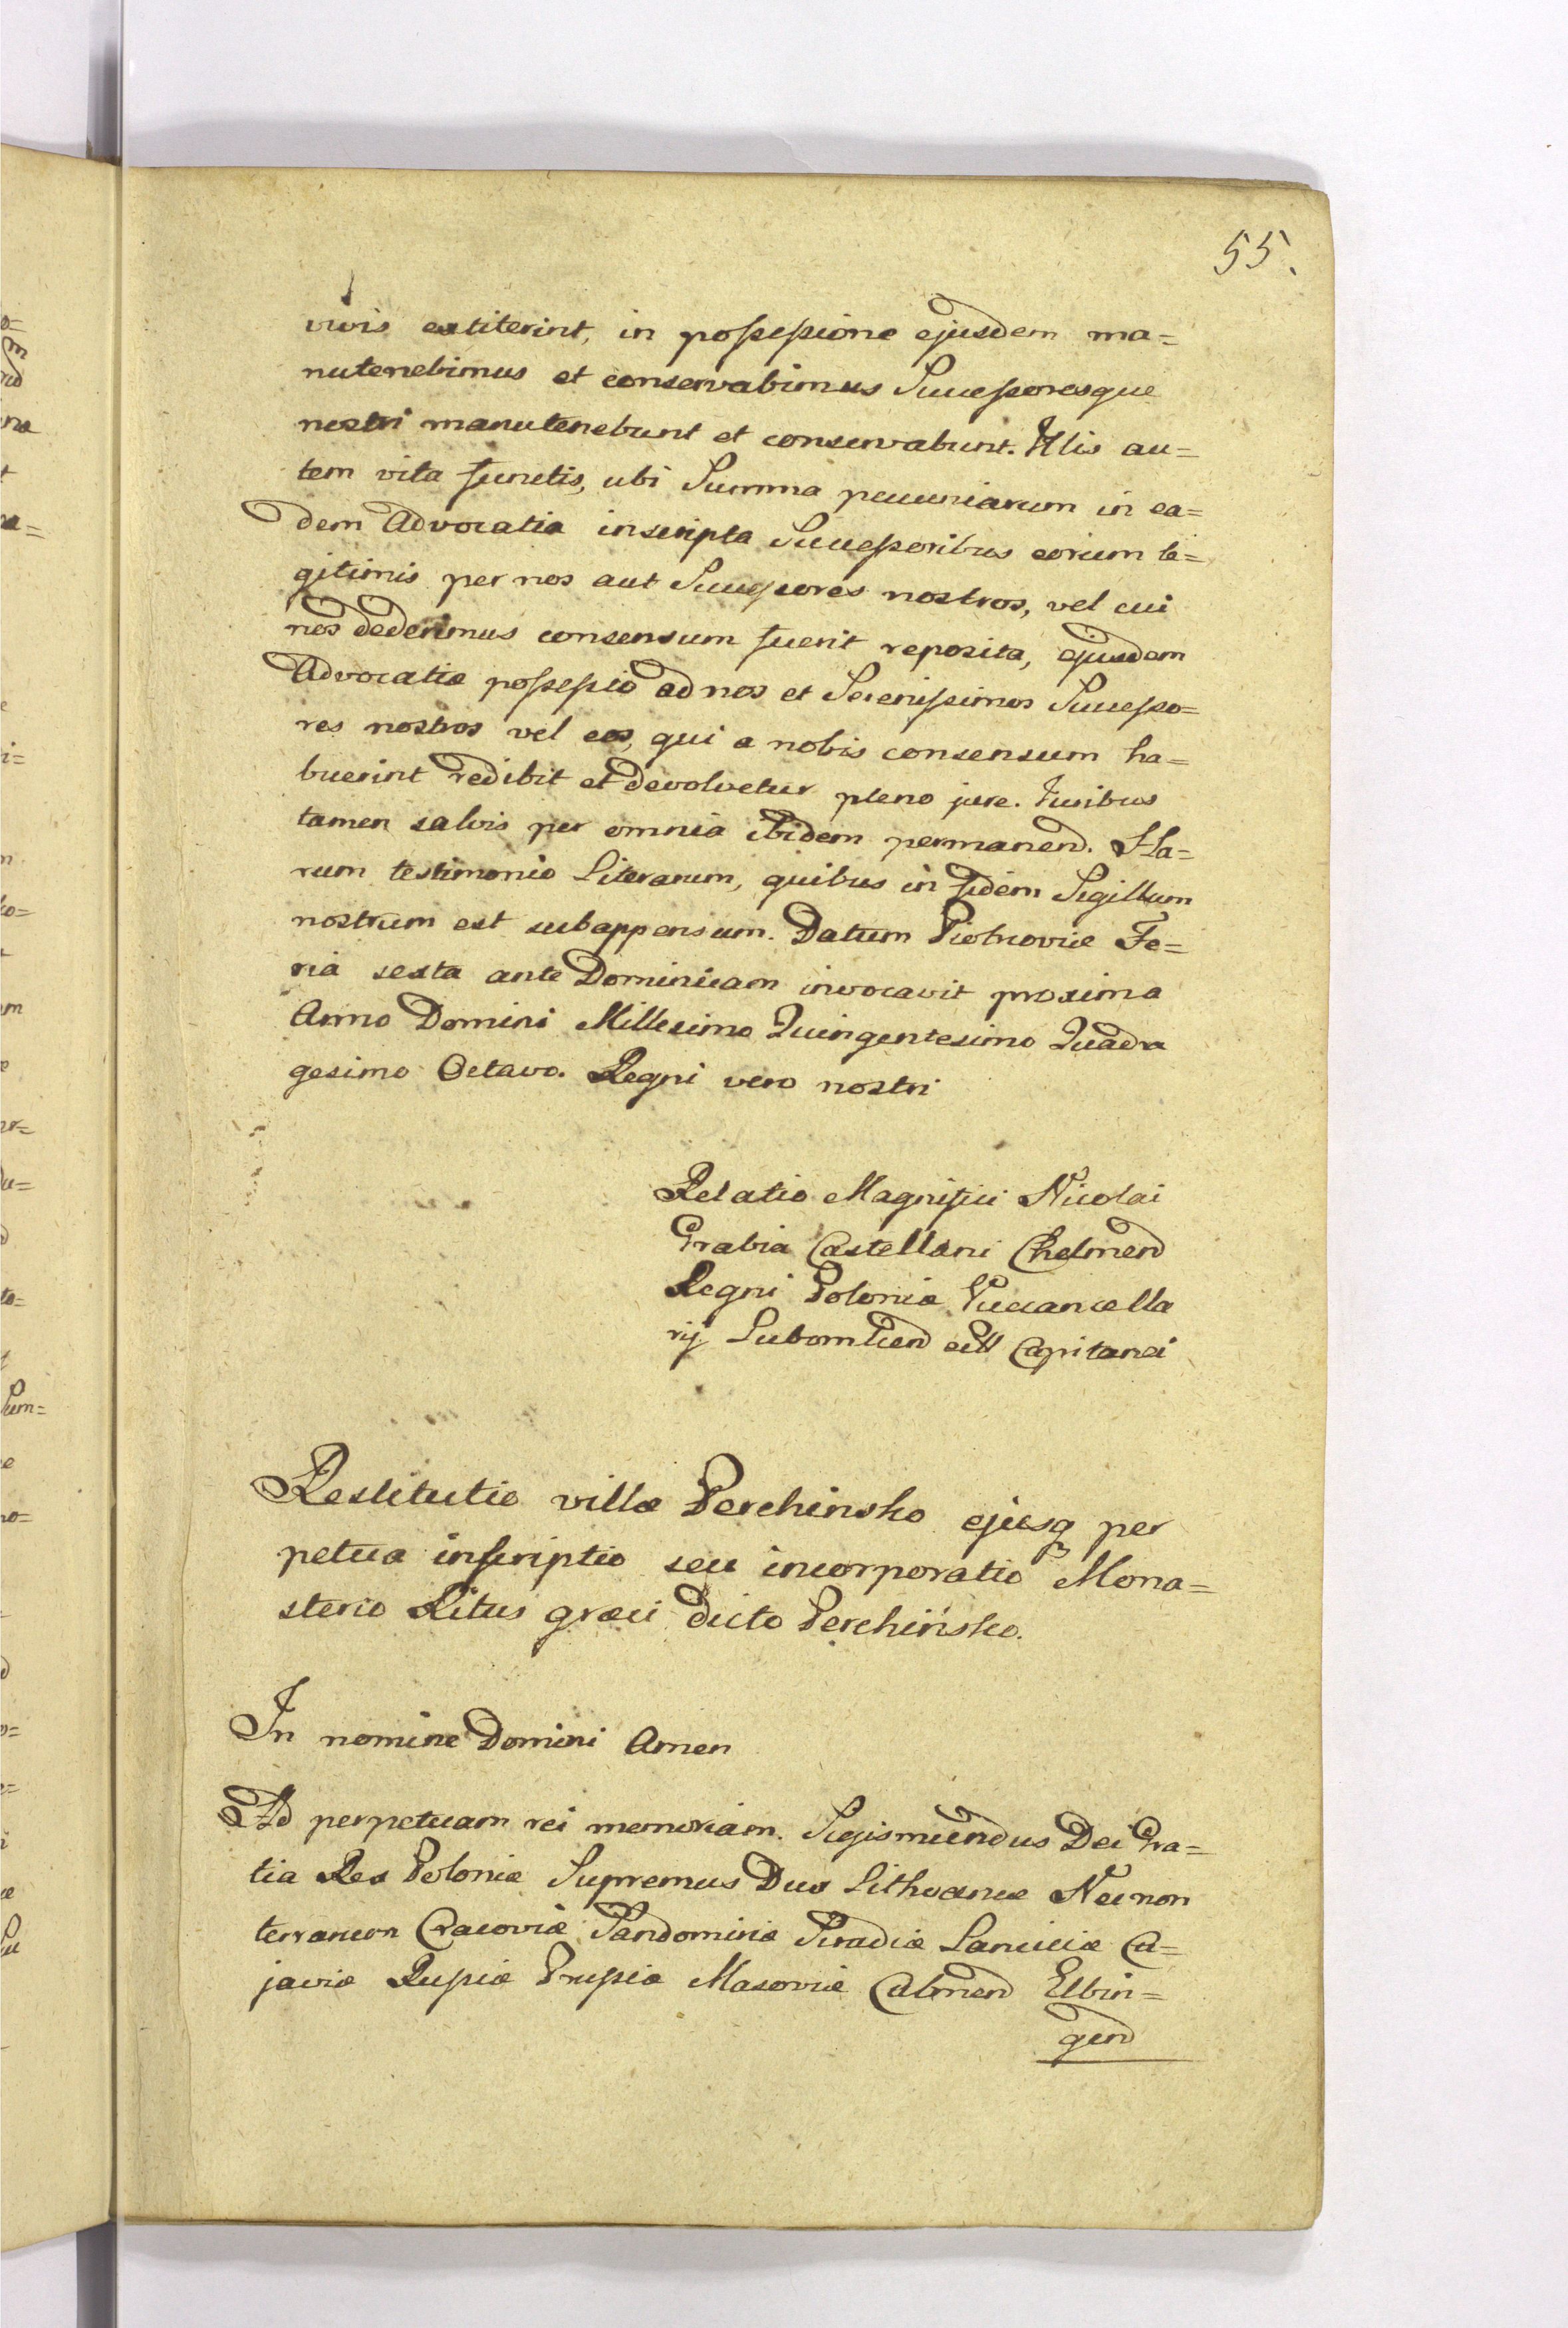 55.
vivis extiterint, in possessione ejusdem ma=
nutenebimus et conservabimus Successoresque
nostri manutenebunt et conservabunt. Illis au=
tem vita functis, ubi Summa pecuniarum in ea=
dem Advocatia inscripta Successoribus eorum le=
gitimis per nos aut Successores nostros, vel cui
nos dederimus consensum fuerit reposita, ejusdem
Advocatiæ possessio ad nos et Serenissimos Successo=
res nostros vel eos, qui a nobis consensum ha=
buerint redibit et devolvetur pleno jure. Juribus
tamen salvis per omnia ibidem permanend. Ha=
rum testimonio Literarum, quibus in fidem Sigillum
nostrum est subappensum. Datum Piotrcoviæ Fe=
ria sexta ante Dominicam invocavit proxima
Anno Domini Millesimo Quingentesimo Quadra
gesimo Octavo. Regni vero nostri
Relatio Magnifici Nicolai
Grabia Castellani Chelmen
Regni Poloniæ Vicecancella
rij Lubomlien Capitanei
Restitutio villæ Perehinsko ejusq per
petua inscriptio seu incorporatio Mona=
sterio Ritus græci dicto Perehinsko.
In nomine Domini Amen
Ad perpetuam rei memoriam. Sigismundus Dei Gra=
tia Rex Poloniæ Supremus Dux Lithvaniæ Necnon
terrarum Cracoviæ Sandomiriæ Siradiæ Lanciciæ Cu=
javiæ Russiæ Prussiæ Masoviæ Culmen Elbin=
gen